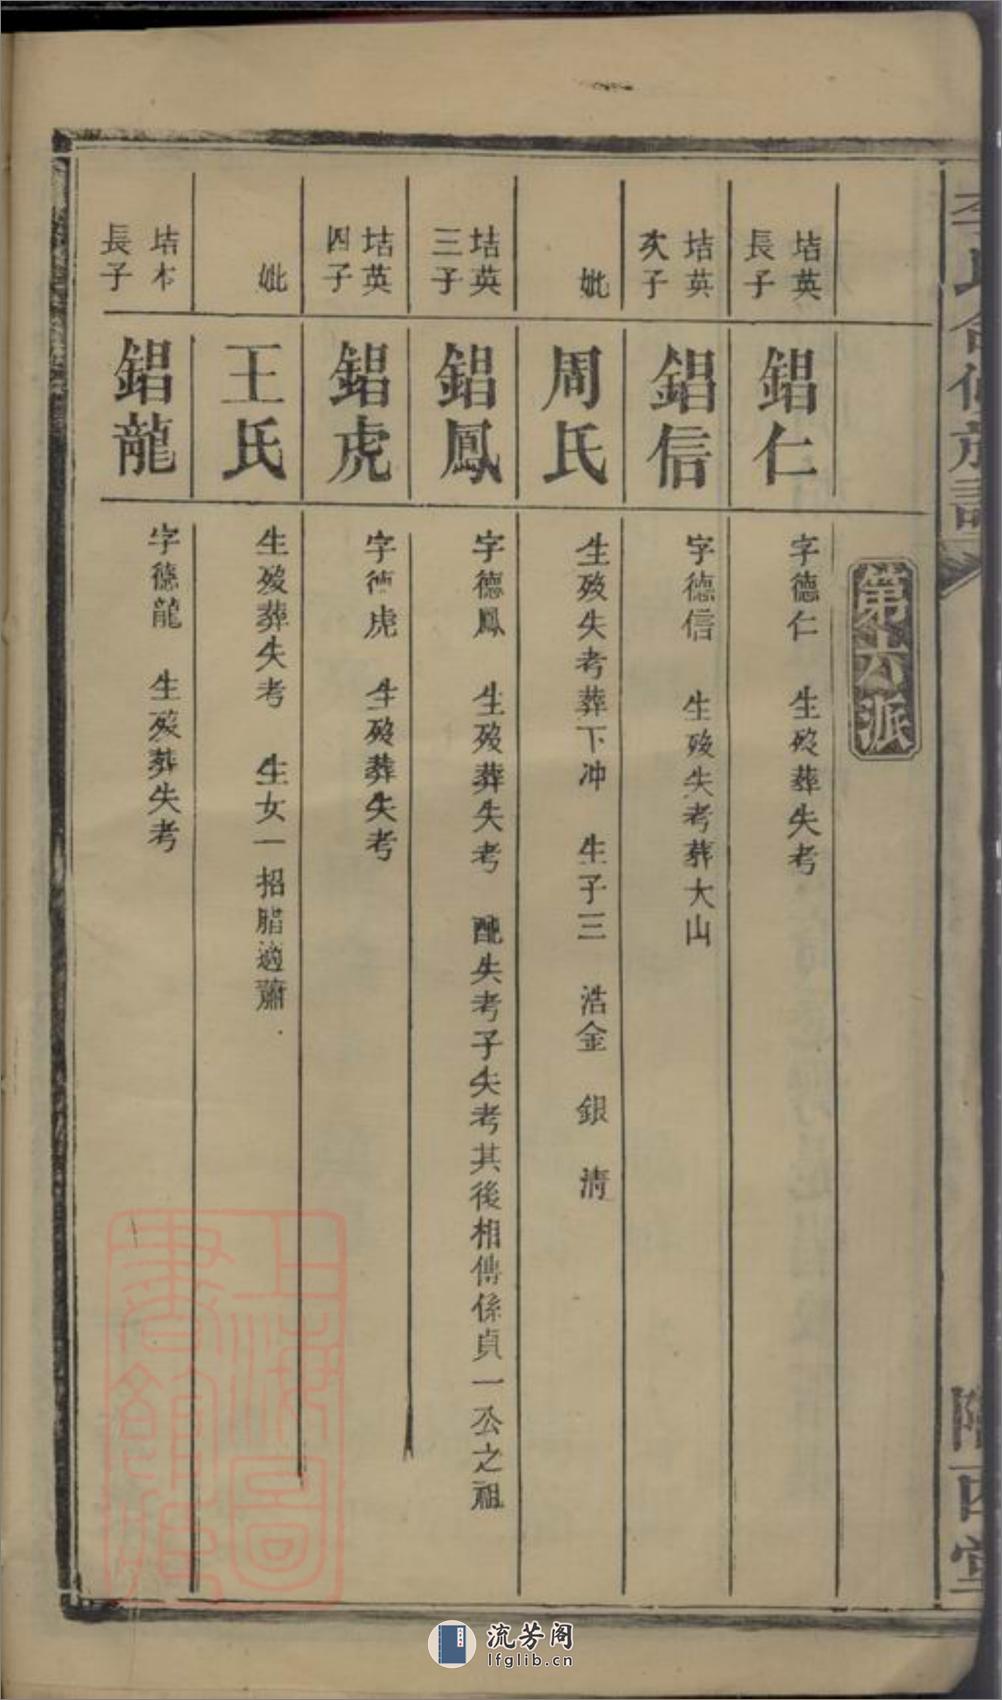 李氏合修族譜
隴西堂
第十六派
垥英長子
錩仁
字德仁 生歿葬失考
垥英次子
錩信
字德信 生歿失考葬大山
妣
周氏
生歿失考葬下冲 生子三 浩金 銀 清
垥英三子
錩鳳
字德鳳 生歿葬失考 配失考子失考其後相傳係貞一公之祖
垥英四子
錩虎
字德虎 生歿葬失考
妣
王氏
生歿葬失考 生女一招腊適蕭
垥本長子
錩龍
字德龍 生歿葬失考
上海圖書館藏
流芳阁
lfglib.cn